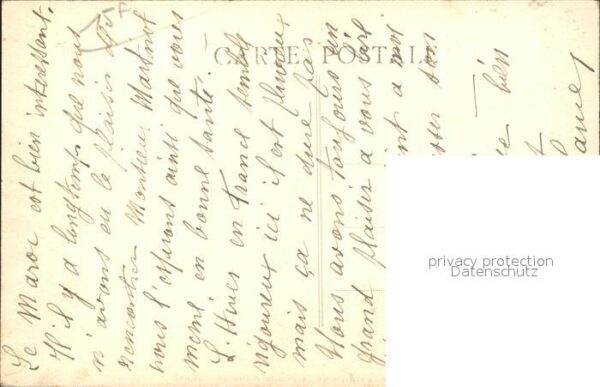 CARTE POSTALE
Le Maroc est bien intéressant.
Il y a longtemps que nous
n'avons eu le plaisir de
rencontrer Monsieur
nous l'espérons ainsi que vous
même en bonne santé.
L'hiver en France semble
rigoureux ici il est pluvieux
mais ça ne dure pas
Nous avons toujours un
grand plaisir à vous
bien
privacy protection
Datenschutz